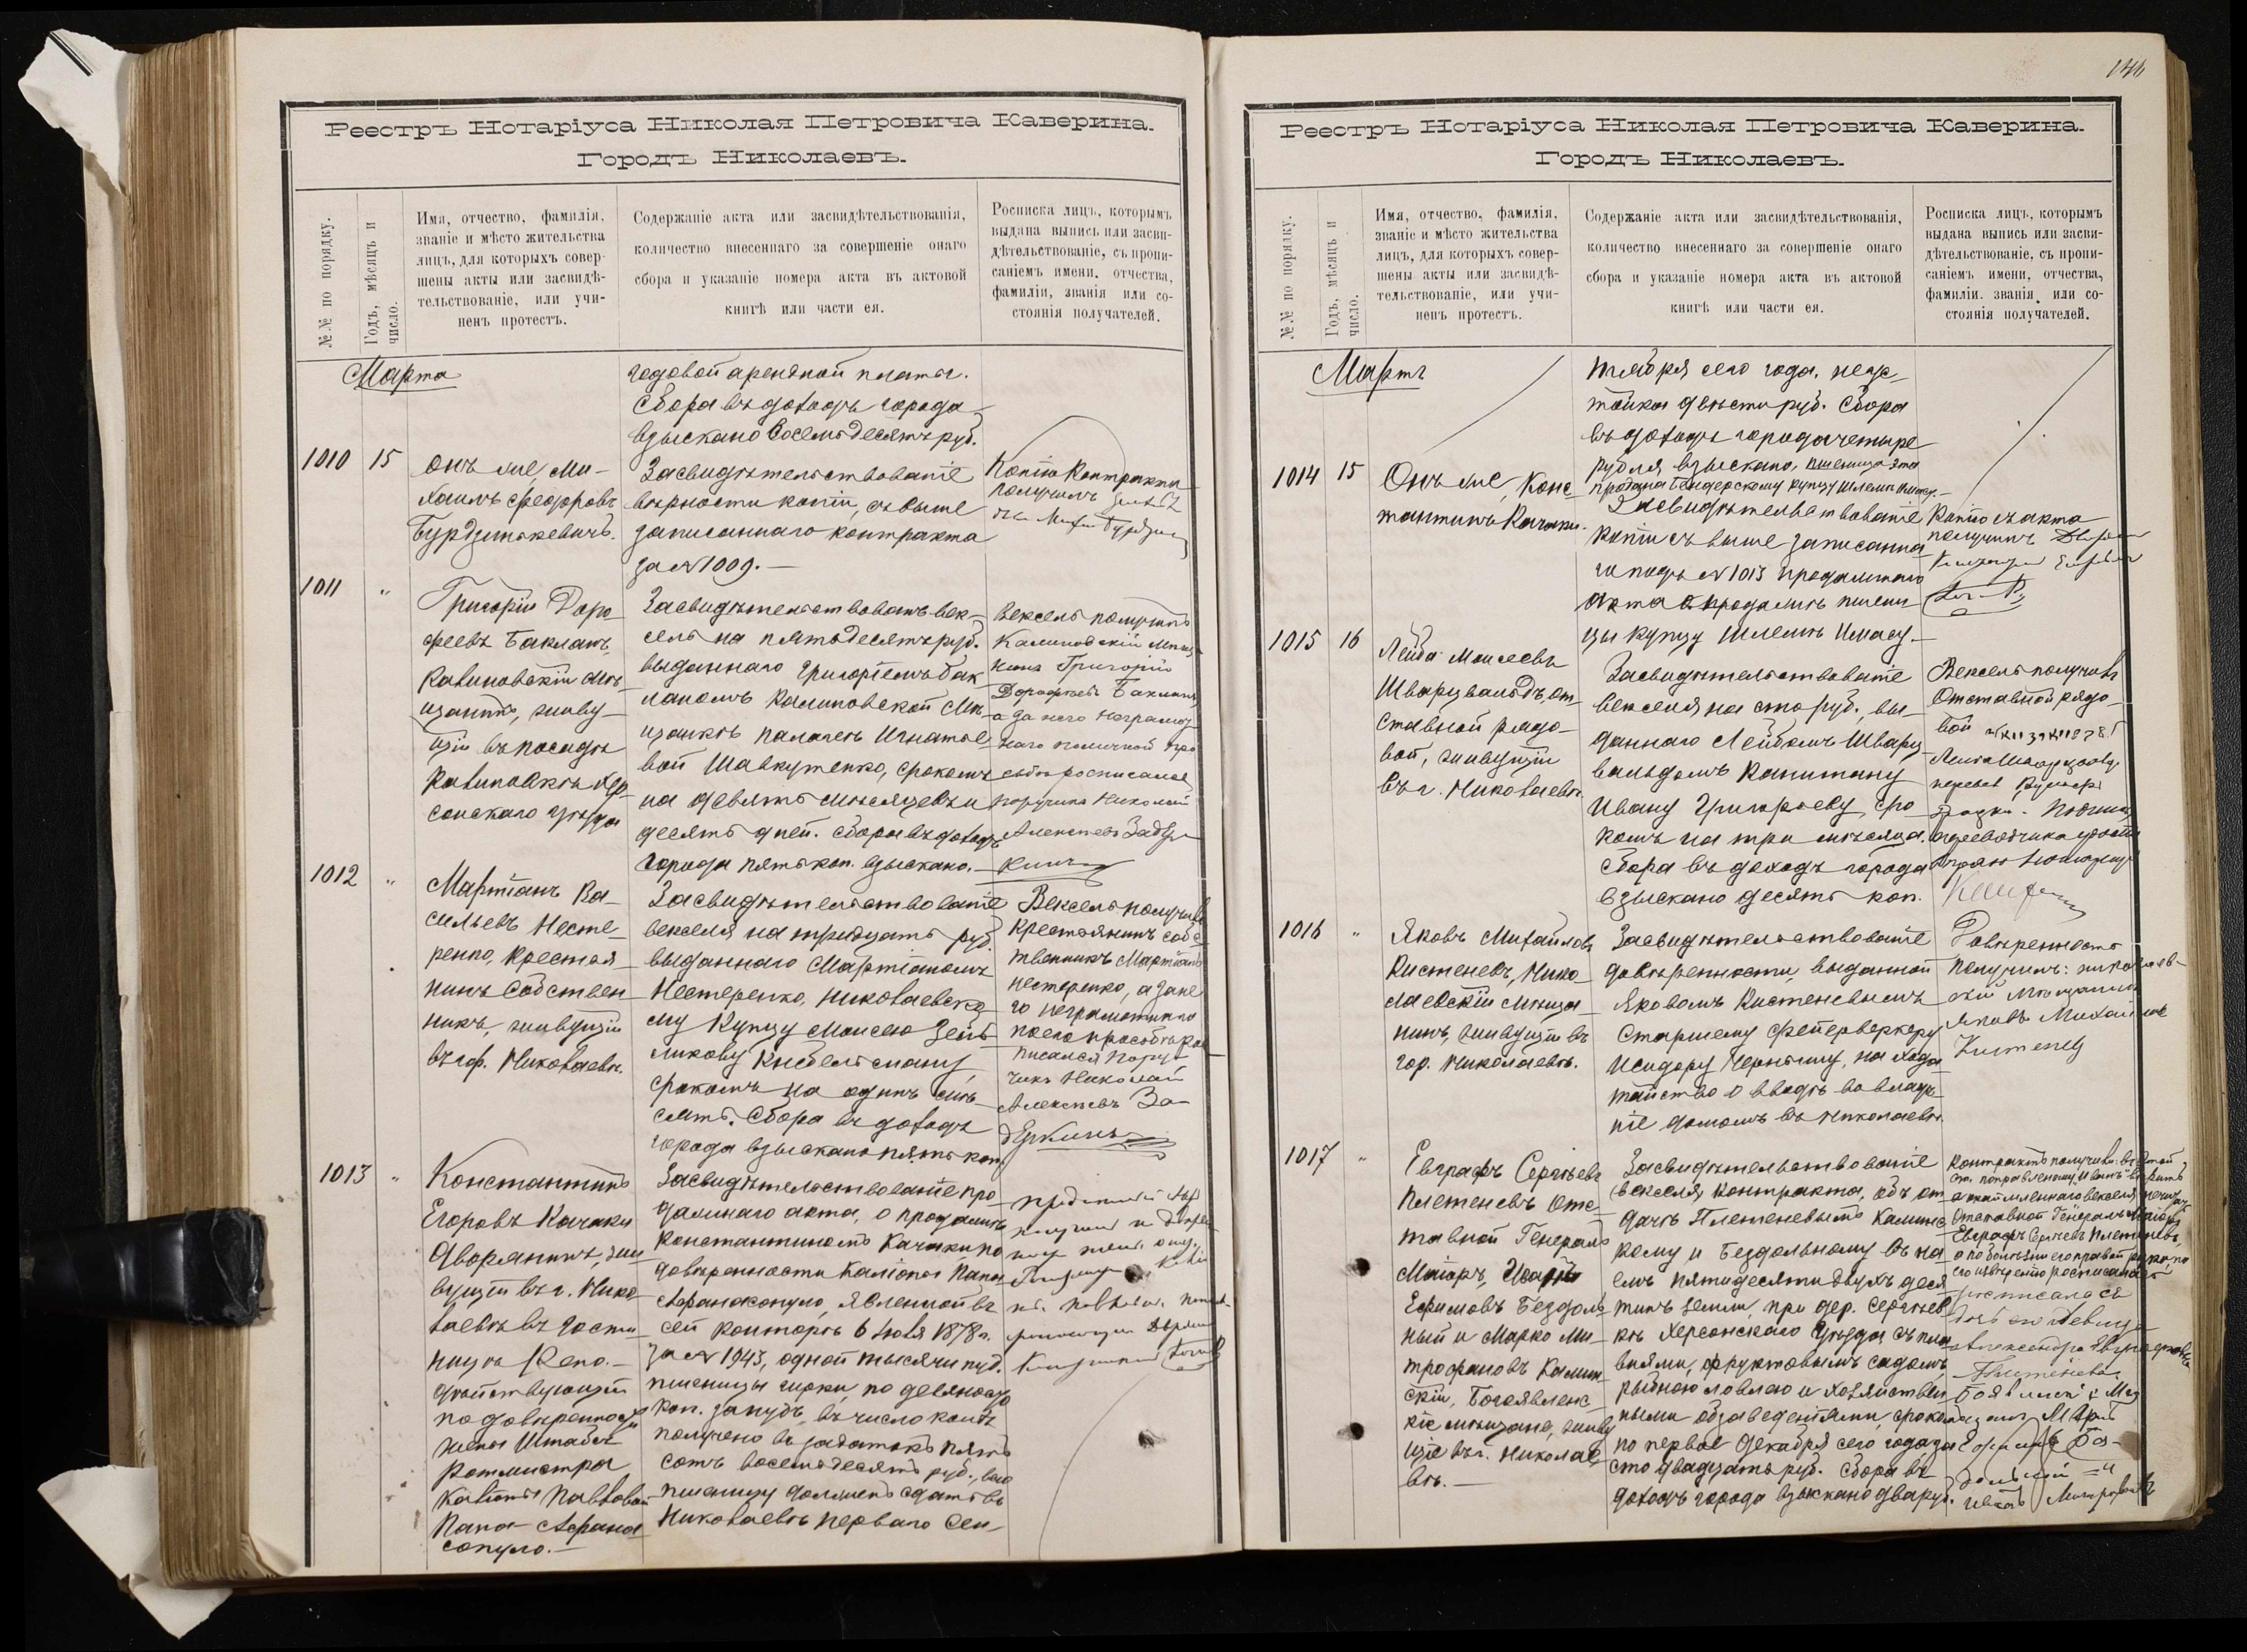 Реестръ Нотаріуса Николая Петровича Каверина.
Городъ Николаевъ.
№№ по порядку.
Годъ, мѣсяцъ и
число.
Имя, отчество, фамилія,
званіе и мѣсто жительства
лицъ, для которыхъ совер-
шены акты или засвидѣ-
тельствованіе, или учи-
ненъ протестъ.
Содержаніе акта или засвидѣтельствованія,
количество внесеннаго за совершеніе онаго
сбора и указаніе номера акта въ актовой
книгѣ или части ея.
Росписка лицъ, которымъ
выдана выпись или засви-
дѣтельствованіе, съ пропи-
саніемъ имени, отчества,
фамиліи, званія или со-
стоянія получателей.
Марта
годовой арендной платы.
Сбора въ доходъ города
взыскано восемьдесятъ руб.
1010
15
Онъ же, Ми-
хаилъ Феодоровъ
Бурдзинкевичъ.
Засвидѣтельствованіе
вѣрности копіи, съ выше
записаннаго контракта
за № 1009.
Копію контракта
получилъ
1011
"
Григорій Доро-
феевъ Бакланъ,
Калиновскій мѣ-
щанинъ, живу-
щій въ посадѣ
Калиновкѣ Хер-
сонскаго уѣзда
Засвидѣтельствовать век-
сель на пятьдесятъ руб.
выданнаго Григоріемъ Бак-
ланомъ Калиновской мѣ-
щанкѣ Палагеѣ Игнатье-
вой Шавкутенко, срокомъ
на девять мѣсяцевъ и
десять дней. Сбора въ доходъ
города пять коп. взыскано.
Вексель получилъ
Калиновскій мѣща-
нинъ Григорій
Дорофеевъ Бакланъ,
а за него неграмот-
наго по личной про-
сьбѣ росписался
поручикъ Николай
Алексѣевъ Задер-
кинъ
1012
"
Мартіанъ Ва-
сильевъ Несте-
ренко, крестья-
нинъ собствен-
никъ, живущій
въ гор. Николаевѣ.
Засвидѣтельствованіе
векселя на тридцать руб.
выданнаго Мартіаномъ
Нестеренко, Николаевско-
му купцу Моисею Зель-
ликову Кибельману,
срокомъ на одинъ мѣ-
сяцъ. Сбора въ доходъ
города взыскано пять коп.
Вексель получилъ
крестьянинъ собс-
твенникъ Мартіанъ
Нестеренко, а за не-
го неграмотнаго
по его просьбѣ рос-
писался Пору-
чикъ Николай
Алексѣевъ За-
деркинъ
1013
"
Константинъ
Егоровъ Качаки
дворянинъ, жи-
вущій въ г. Нико-
лаевѣ въ гости-
ницѣ Рено.
дѣйствующій
по довѣренности
жены Штабсъ
Ротмистра
Каліопы Павловой
Папа-Афана-
сопуло.
Засвидѣтельствованіе про-
дажнаго акта, о продажѣ
Константиномъ Качаки, по
довѣренности Каліопы Папа
Афанасопуло, явленной въ
сей конторѣ 6 Іюля 1878 г.
за № 1943, одной тысячи пуд.
пшеницы гирки, по девяносто
коп. за пудъ, въ число коихъ
получено въ задатокъ пять
сотъ восемьдесятъ руб., всю
пшеницу долженъ сдать въ
Николаевѣ перваго Сен-
146
Реестръ Нотаріуса Николая Петровича Каверина.
Городъ Николаевъ.
№№ по порядку.
Годъ, мѣсяцъ и
число.
Имя, отчество, фамилія,
званіе и мѣсто жительства
лицъ, для которыхъ совер-
шены акты или засвидѣ-
тельствованіе, или учи-
ненъ протестъ.
Содержаніе акта или засвидѣтельствованія,
количество внесеннаго за совершеніе онаго
сбора и указаніе номера акта въ актовой
книгѣ или части ея.
Росписка лицъ, которымъ
выдана выпись или засви-
дѣтельствованіе, съ пропи-
саніемъ имени, отчества,
фамиліи, званія или со-
стоянія получателей.
Мартъ
тября сего года, неус-
тойка двѣсти руб. Сбора
въ доходъ города четыре
рубля взыскано, пшеница эта
продана Бендерскому купцу Шлемѣ Имасу.
1014
15
Онъ же, Конс-
тантинъ Качаки.
Засвидѣтельствованіе
копіи съ выше записанна-
го подъ № 1013 продажнаго
акта о продажѣ пшени-
цы купцу Шлемѣ Имасу
Копію съ акта
получилъ
1015
16
Лейба Моисеевъ
Шварцвальдъ, от-
ставной рядо-
вой, живущій
въ г. Николаевѣ.
Засвидѣтельствованіе
векселя на сто руб., вы-
даннаго Лейбомъ Шварц-
вальдомъ Капитану
Ивану Григорьеву, сро-
комъ на три мѣсяца.
Сбора въ доходъ города
взыскано десять коп.
Вексель получилъ
Отставной рядо-
вой
1016
"
Яковъ Михайловъ
Кистеневъ, Нико-
лаевскій мѣща-
нинъ, живущій въ
гор. Николаевѣ.
Засвидѣтельствованіе
довѣренности, выданной
Яковомъ Кистеневымъ
Старшему фейерверкеру
Исидору Чернышу, на хода-
тайство о вводѣ во владѣ-
ніе домомъ въ Николаевѣ.
Довѣренность
получилъ: николаев-
скій мѣщанинъ
Яковъ Михайловъ
Кистеневъ
1017
"
Евграфъ Сергѣевъ
Плетеневъ отс-
тавной Генералъ
Маіоръ, Иванъ
Ефимовъ Бездоль-
ный и Марко Ми-
трофановъ Калин-
скій, Богоявленс-
кіе мѣщане, живу-
щіе въ г. Николае-
вѣ.
Засвидѣтельствованіе
векселя контракта, объ от-
дачѣ Плетеневымъ Калинс-
кому и Бездольному въ на-
емъ пятидесяти двухъ деся-
тинъ земли, при дер. Сергѣев-
кѣ Херсонскаго уѣзда, съ пла-
внями, фруктовымъ садомъ,
рыбною ловлею и хозяйствен-
ными обзаведеніями, срокомъ
по первое Декабря сего года за
сто двадцать руб. Сбора въ
доходъ города взыскано два руб.
Отставной Генералъ Маіоръ
Евграфъ Сергѣевъ Плетеневъ,
а по болѣзни его правой руки, по
его довѣрію росписалась
росписалась
дочь его девица
Александра Евграфовна
Плетенева.